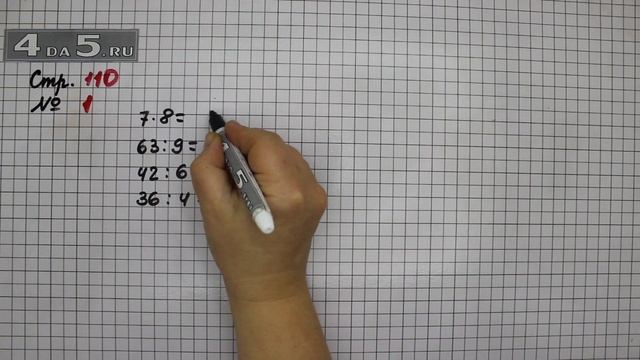 4 DA 5.RU
Стр. 110
№ 1
7·8=
63:9=
42:6
36:4